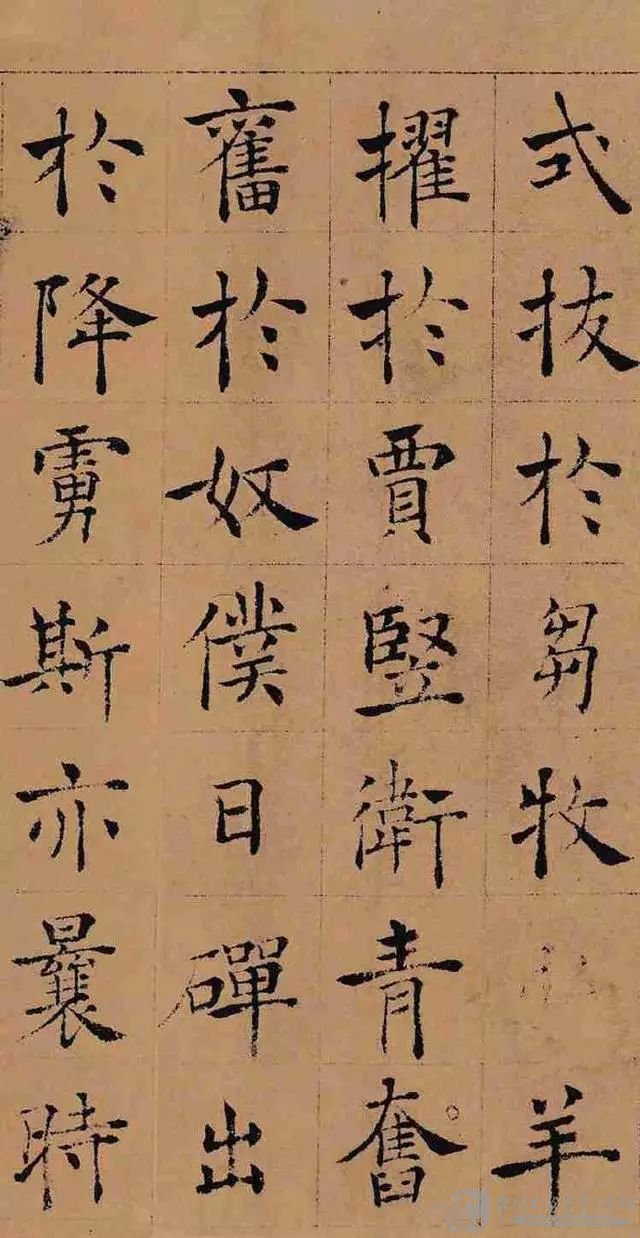 式拔於芻牧羊
擢於賈豎衛青奮
奮於奴僕日磾出
於降虜斯亦曩時